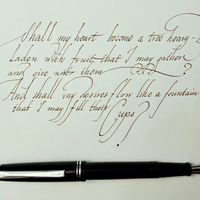 Shall my heart become a tree heavy-
Laden with fruit, that I may gather
and give unto them ?
And shall my desires flow like a fountain
that I may fill their
Cups